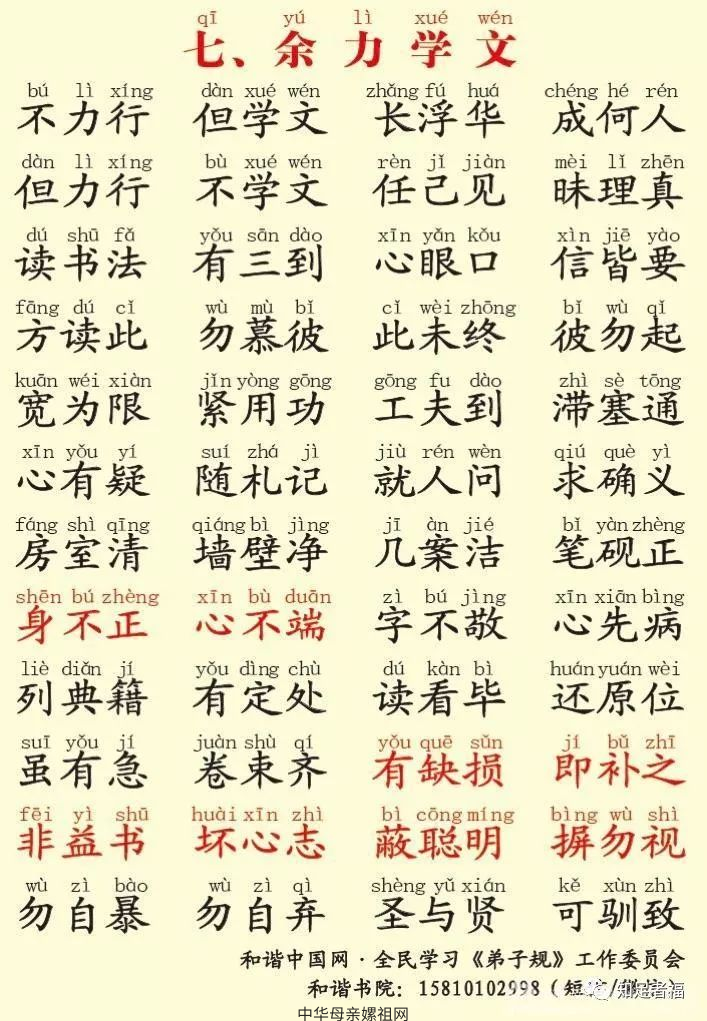 qī yú lì xué wén
七、余力学文
bú lì xíng dàn xué wén zhǎng fú huá chéng hé rén
不力行 但学文 长浮华 成何人
dàn lì xíng bù xué wén rèn jǐ jiàn mèi lǐ zhēn
但力行 不学文 任己见 昧理真
dú shū fǎ yǒu sān dào xīn yǎn kǒu xìn jiē yào
读书法 有三到 心眼口 信皆要
fāng dú cǐ wù mù bǐ cǐ wèi zhōng bǐ wù qǐ
方读此 勿慕彼 此未终 彼勿起
kuān wéi xiàn jǐn yòng gōng gōng fu dào zhì sè tōng
宽为限 紧用功 工夫到 滞塞通
xīn yǒu yí suí zhá jì jiù rén wèn qiú què yì
心有疑 随札记 就人问 求确义
fáng shì qīng qiáng bì jìng jī àn jié bǐ yàn zhèng
房室清 墙壁净 几案洁 笔砚正
shēn bú zhèng xīn bù duān zì bú jìng xīn xiān bìng
身不正 心不端 字不敬 心先病
liè diǎn jí yǒu dìng chù dú kàn bì huán yuán wèi
列典籍 有定处 读看毕 还原位
suī yǒu jí juàn shù qí yǒu quē sǔn jí bǔ zhī
虽有急 卷束齐 有缺损 即补之
fēi yì shū huài xīn zhì bì cōng míng bìng wù shì
非益书 坏心志 蔽聪明 摒勿视
wù zì bào wù zì qì shèng yǔ xián kě xùn zhì
勿自暴 勿自弃 圣与贤 可驯致
和谐中国网·全民学习《弟子规》工作委员会
和谐书院：15810102998（短
知足者福
中华母亲嫘祖网